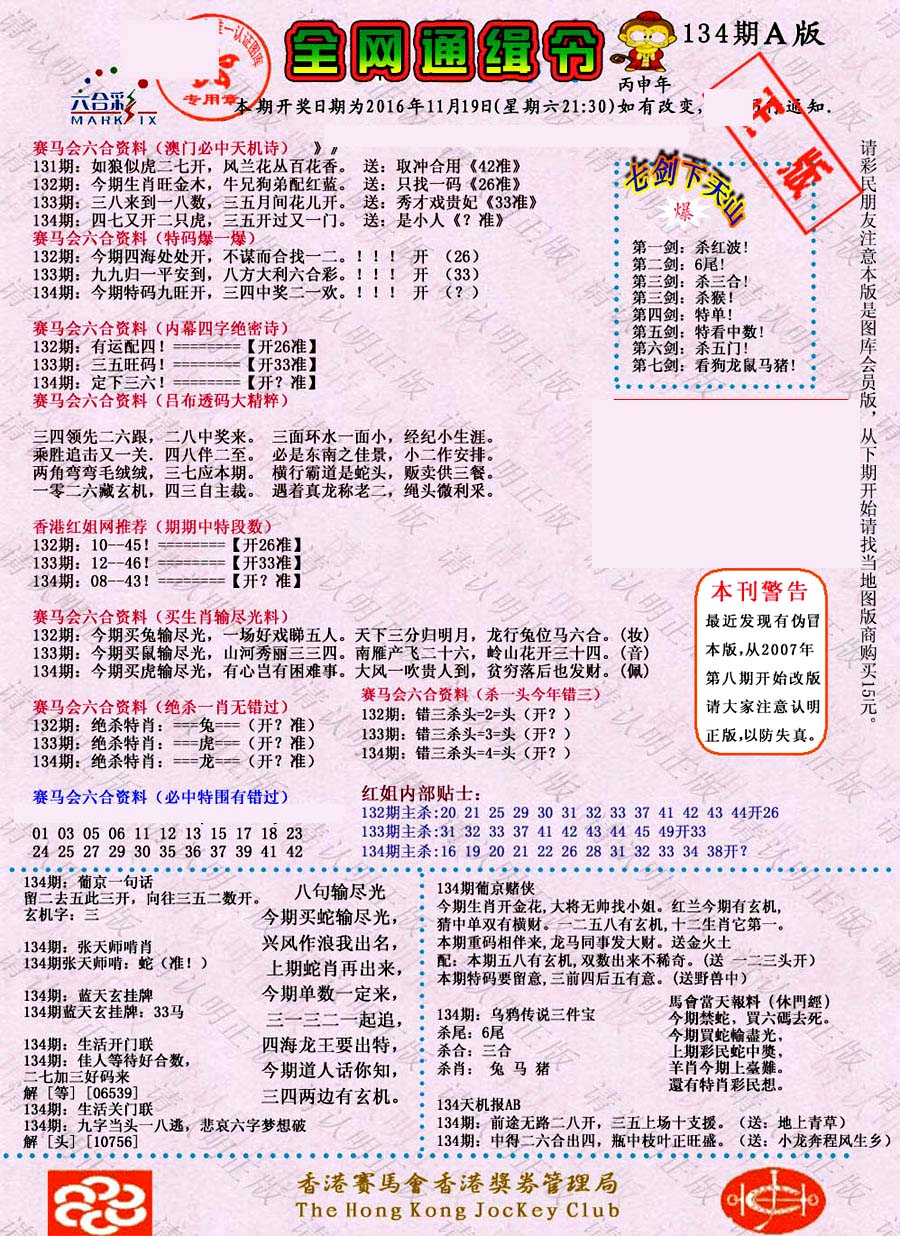 全网通缉令
134期A版
丙申年
六合彩
MARK SIX
专用章
本期开奖日期为2016年11月19日(星期六21:30)如有改变,
通知.
正版
请彩民朋友注意本版是图库会员版，从下期开始请找当地图版商购买15元。
赛马会六合资料（澳门必中天机诗） 》〃
131期：如狼似虎二七开，风兰花丛百花香。 送：取冲合用《42准》
132期：今期生肖旺金木，牛兄狗弟配红蓝。 送：只找一码《26准》
133期：三八来到一八数，三五月间花儿开。 送：秀才戏贵妃《33准》
134期：四七又开二只虎，三五开过又一门。 送：是小人《？准》
赛马会六合资料（特码爆一爆）
132期：今期四海处处开，不谋而合找一二。！！！ 开 （26）
133期：九九归一平安到，八方大利六合彩。！！！ 开 （33）
134期：今期特码九旺开，三四中奖二一欢。！！！ 开 （？）
赛马会六合资料（内幕四字绝密诗）
132期：有运配四！========【开26准】
133期：三五旺码！========【开33准】
134期：定下三六！========【开？准】
赛马会六合资料（吕布透码大精粹）
三四领先二六跟，二八中奖来。 三面环水一面小，经纪小生涯。
乘胜追击又一关．四八伴二至。 必是东南之佳景，小二作安排。
两角弯弯毛绒绒，三七应本期。 横行霸道是蛇头，贩卖供三餐。
一零二六藏玄机，四三自主裁。 遇着真龙称老二，绳头微利采。
七剑下天山
爆
第一剑：杀红波！
第二剑：6尾！
第三剑：杀三合！
第三剑：杀猴！
第四剑：特单！
第五剑：特看中数！
第六剑：杀五门！
第七剑：看狗龙鼠马猪！
香港红姐网推荐（期期中特段数）
132期：10--45！========【开26准】
133期：12--46！========【开33准】
134期：08--43！========【开？准】
本刊警告
最近发现有伪冒
本版,从2007年
第八期开始改版
请大家注意认明
正版,以防失真。
赛马会六合资料（买生肖输尽光料）
132期：今期买兔输尽光，一场好戏睇五人。天下三分归明月，龙行兔位马六合。(妆)
133期：今期买鼠输尽光，山河秀丽三三四。南雁产飞二十六，岭山花开三十四。(音)
134期：今期买虎输尽光，有心岂有困难事。大风一吹贵人到，贫穷落后也发财。(佩)
赛马会六合资料（绝杀一肖无错过）
132期：绝杀特肖：===兔===（开？准）
133期：绝杀特肖：===虎===（开？准）
134期：绝杀特肖：===龙===（开？准）
赛马会六合资料（杀一头今年错三）
132期：错三杀头=2=头（开？）
133期：错三杀头=3=头（开？）
134期：错三杀头=4=头（开？）
赛马会六合资料（必中特围有错过）
01 03 05 06 11 12 13 15 17 18 23
24 25 27 29 30 35 36 37 39 41 42
红姐内部贴士：
132期主杀:20 21 25 29 30 31 32 33 37 41 42 43 44开26
133期主杀:31 32 33 37 41 42 43 44 45 49开33
134期主杀:16 19 20 21 22 26 28 31 32 33 34 38开？
134期：葡京一句话
留二去五此三开，向往三五二数开。
玄机字：三
134期：张天师啃肖
134期张天师啃：蛇（准！）
134期：蓝天玄挂牌
134期蓝天玄挂牌：33马
134期：生活开门联
134期：佳人等待好合数，
二七加三好码来
解［等］[06539]
134期：生活关门联
134期：九字当头一八逃，悲哀六字梦想破
解［头］[10756]
八句输尽光
今期买蛇输尽光，
兴风作浪我出名，
上期蛇肖再出来，
今期单数一定来，
三一三二一起追，
四海龙王要出特，
今期道人话你知，
三四两边有玄机。
134期葡京赌侠
今期生肖开金花,大将无帅找小姐。红兰今期有玄机,
猜中单双有横财。一二五八有玄机,十二生肖它第一。
本期重码相伴来,龙马同事发大财。送金火土
配：本期五八有玄机,双数出来不稀奇。(送 一二三头开)
本期特码要留意,三前四后五有意。(送野兽中)
134期：乌鸦传说三件宝
杀尾：6尾
杀合：三合
杀肖： 兔 马 猪
馬會當天報料（休門經）
今期禁蛇，買六碼去死。
今期買蛇輸盡光，
上期彩民蛇中獎，
羊肖今期上臺難。
還有特肖彩民想。
134天机报AB
134期：前途无路二八开，三五上场十支援。（送：地上青草）
134期：中得二六合出四，瓶中枝叶正旺盛。（送：小龙奔程风生乡）
香港賽馬會香港獎券管理局
The Hong Kong JocKey Club